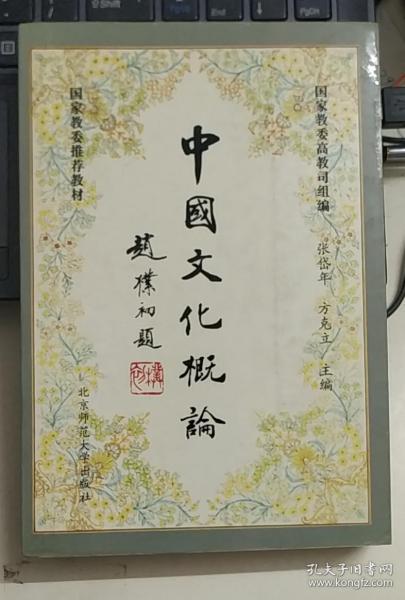 国家教委高教司组编
张岱年 方克立 主编
中國文化概論
趙樸初題
国家教委推荐教材
北京师范大学出版社
孔夫子旧书网
www.kongfz.com